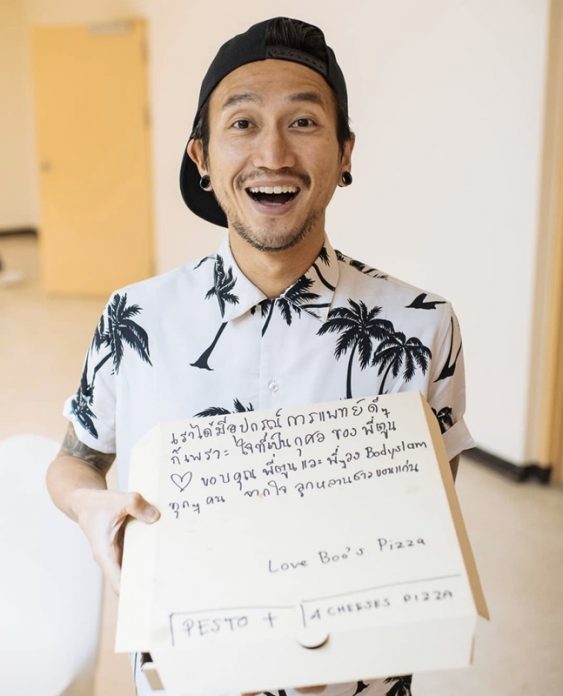 เราได้มีอุปกรณ์การแพทย์ดีๆ
ก็เพราะ ใจที่เป็นกุศล ของ พี่ตูน
♡ ขอบคุณ พี่ตูน และ พี่ๆวง Bodyslam
ทุกๆ คน จากใจ ลูกหลานชาวขอนแก่น
Love Boo's Pizza
PESTO + 4 CHEESES PIZZA